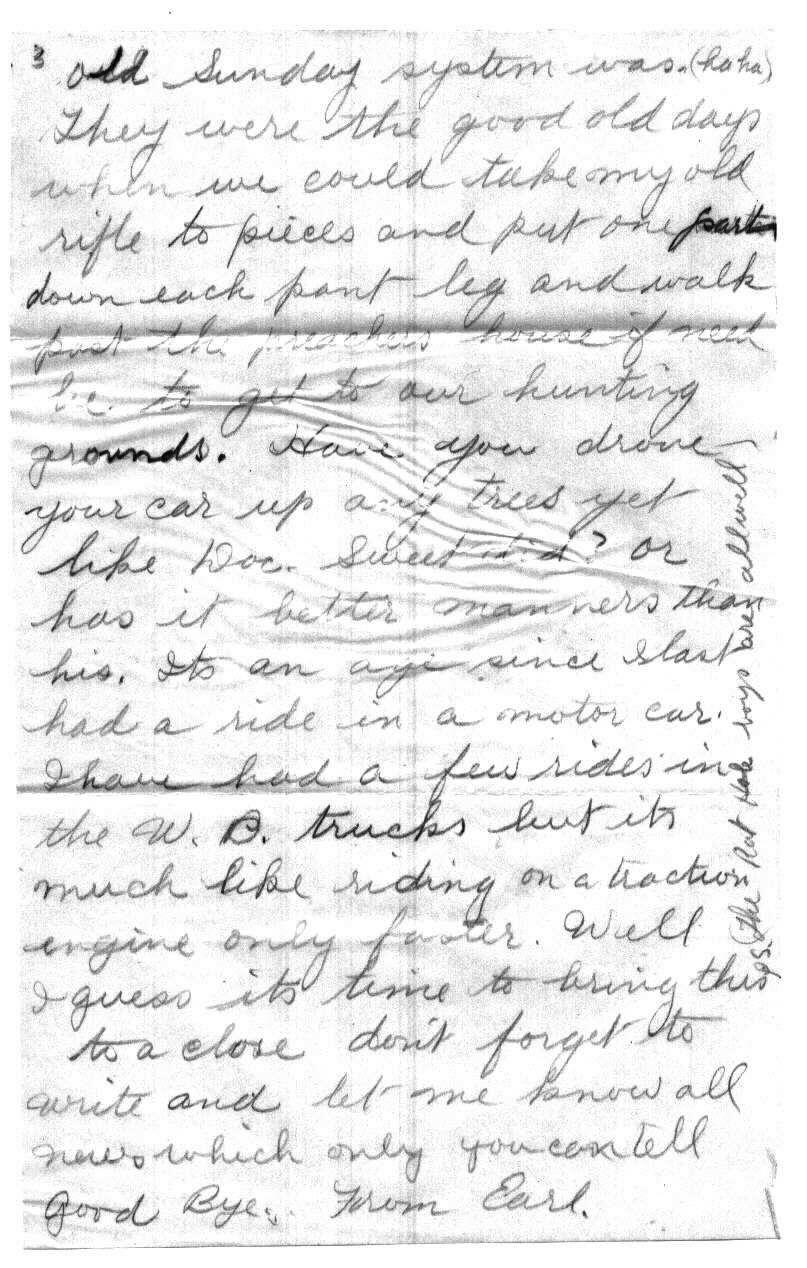 3
old Sunday system was. (ha ha)
They were the good old days
when we could take my old
rifle to pieces and put one part
down each pant leg and walk
past the preachers house if need
be. to get to our hunting
grounds. Have you drove
your car up any trees yet
like Doc. Sweet did? or
has it better manners than
his. Its an age since I last
had a ride in a motor car.
I have had a few rides in
the W. B. trucks but its
much like riding on a traction
engine only faster. Well
I guess its time to bring this
to a close don't forget to
write and let me know all
news which only you can tell
Good Bye. From Earl.
P.S. (The Rat Hole boys are all well